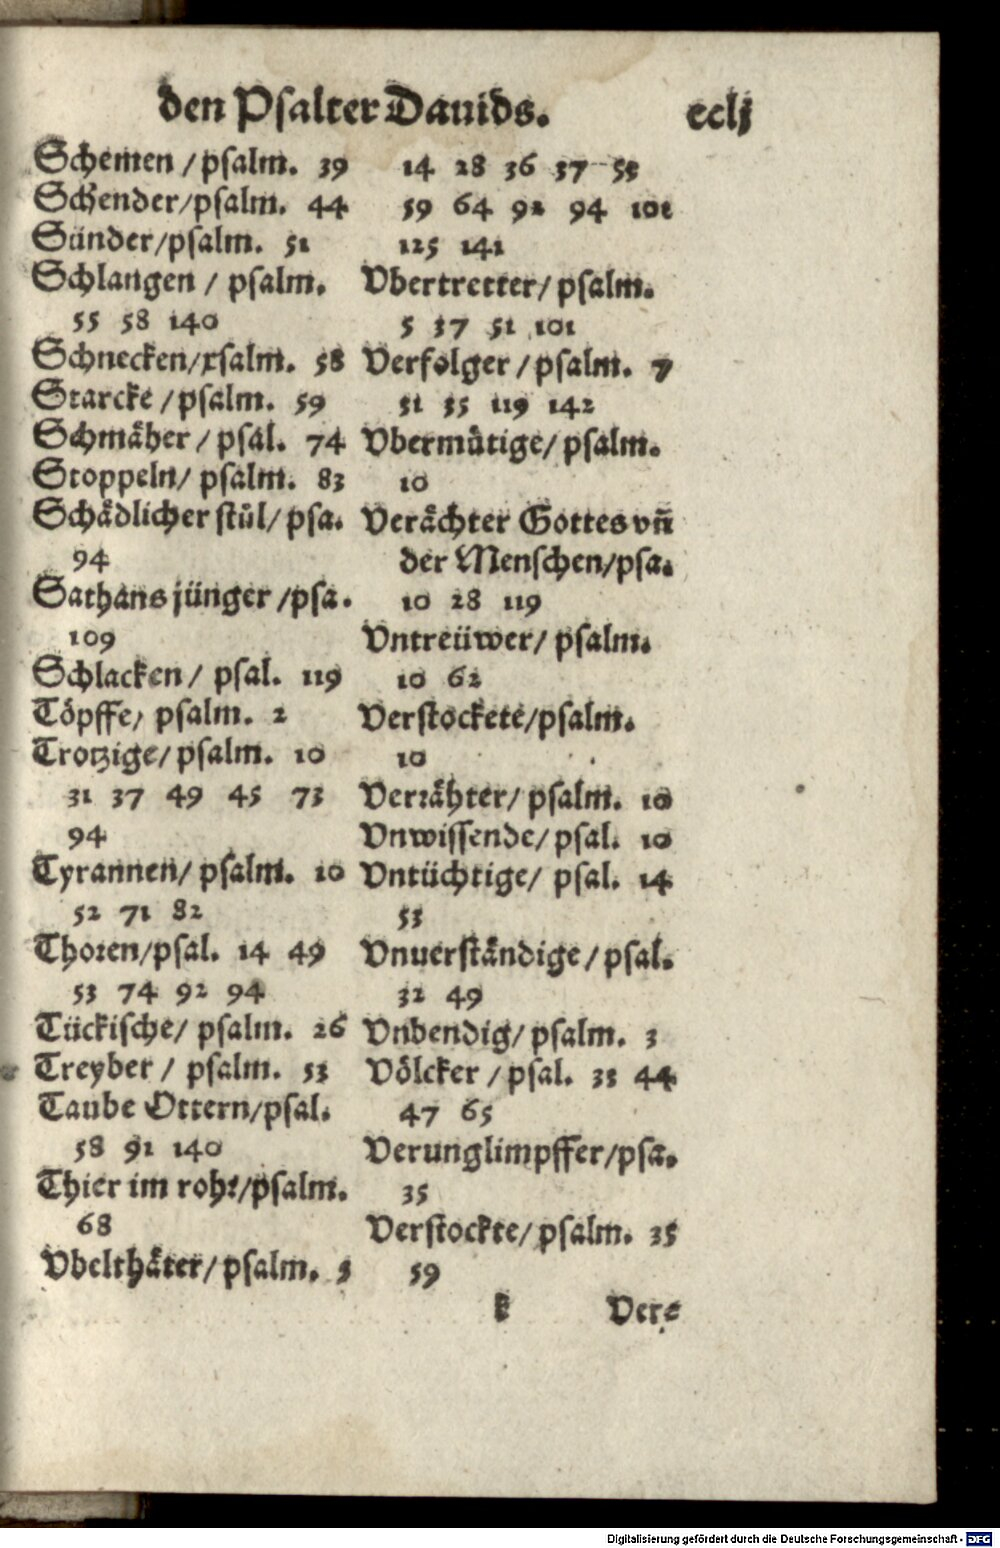 den Psalter Dauids. cclj
Schemen / psalm. 39
Schender/psalm. 44
Sünder/psalm. 51
Schlangen / psalm.
55 58 140
Schnecken/psalm. 58
Starcke / psalm. 59
Schmäher / psal. 74
Stoppeln/ psalm. 83
Schädlicher stůl/ psa.
94
Sathans jünger /psa.
109
Schlacken / psal. 119
Töpffe/ psalm. 2
Trotzige/ psalm. 10
31 37 49 45 73
94
Tyrannen/ psalm. 10
52 71 82
Thoren/psal. 14 49
53 74 92 94
Tückische/ psalm. 26
Treyber / psalm. 53
Taube Ottern/psal.
58 91 140
Thier im rohr/psalm.
68
Vbelthäter/ psalm. 5
14 28 36 37 53
59 64 92 94 101
125 141
Vbertretter/ psalm.
5 37 51 101
Verfolger / psalm. 7
31 35 119 142
Vbermütige/ psalm.
10
Verächter Gottes vñ
der Menschen/psa.
10 28 119
Vntreüwer/ psalm.
10 62
Verstockete/psalm.
10
Verrähter/ psalm. 10
Vnwissende/ psal. 10
Vntüchtige/ psal. 14
53
Vnuerständige / psal.
32 49
Vnbendig/ psalm. 3
Völcker / psal. 33 44
47 65
Verunglimpffer/psa.
35
Verstockte/ psalm. 35
59
k Ver⸗
Digitalisierung gefördert durch die Deutsche Forschungsgemeinschaft - DFG